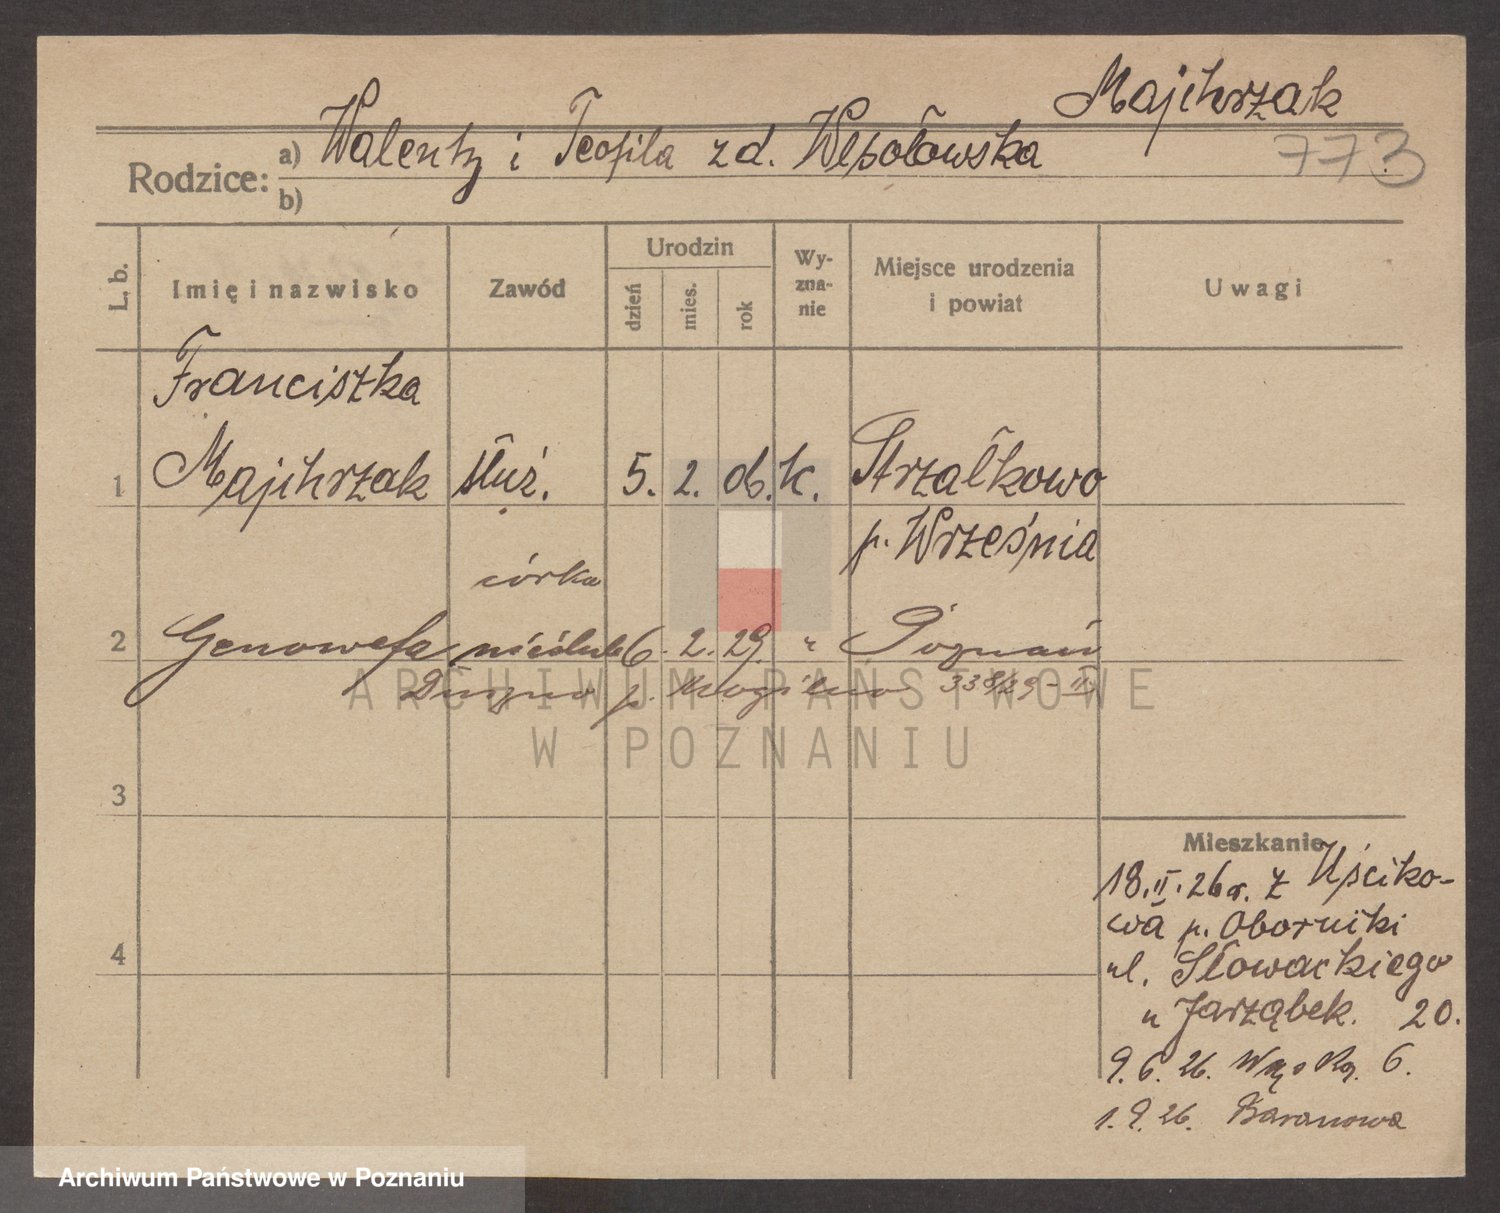 Majchrzak
773
Rodzice: a) Walenty i Teofila zd. Wesołowska
b)
L. b.
Imię i nazwisko
Zawód
Urodzin
dzień
mies.
rok
Wy-
zna-
nie
Miejsce urodzenia
i powiat
Uwagi
Franciszka
1 Majchrzak służ. 5. 2. 06. k. Strzałkowo
p. Września
córka
2 Genowefa nieślub 6. 2. 29. " Poznań
p. Mogilno 338/29-
3
4
Mieszkanie
18.II.26 r. z Uściko-
wa p. Oborniki
ul. Słowackiego
u Jarząbek. 20.
9.6.26. Wąska. 6.
1.9.26. Baranowa
ARCHIWUM PAŃSTWOWE
W POZNANIU
Archiwum Państwowe w Poznaniu